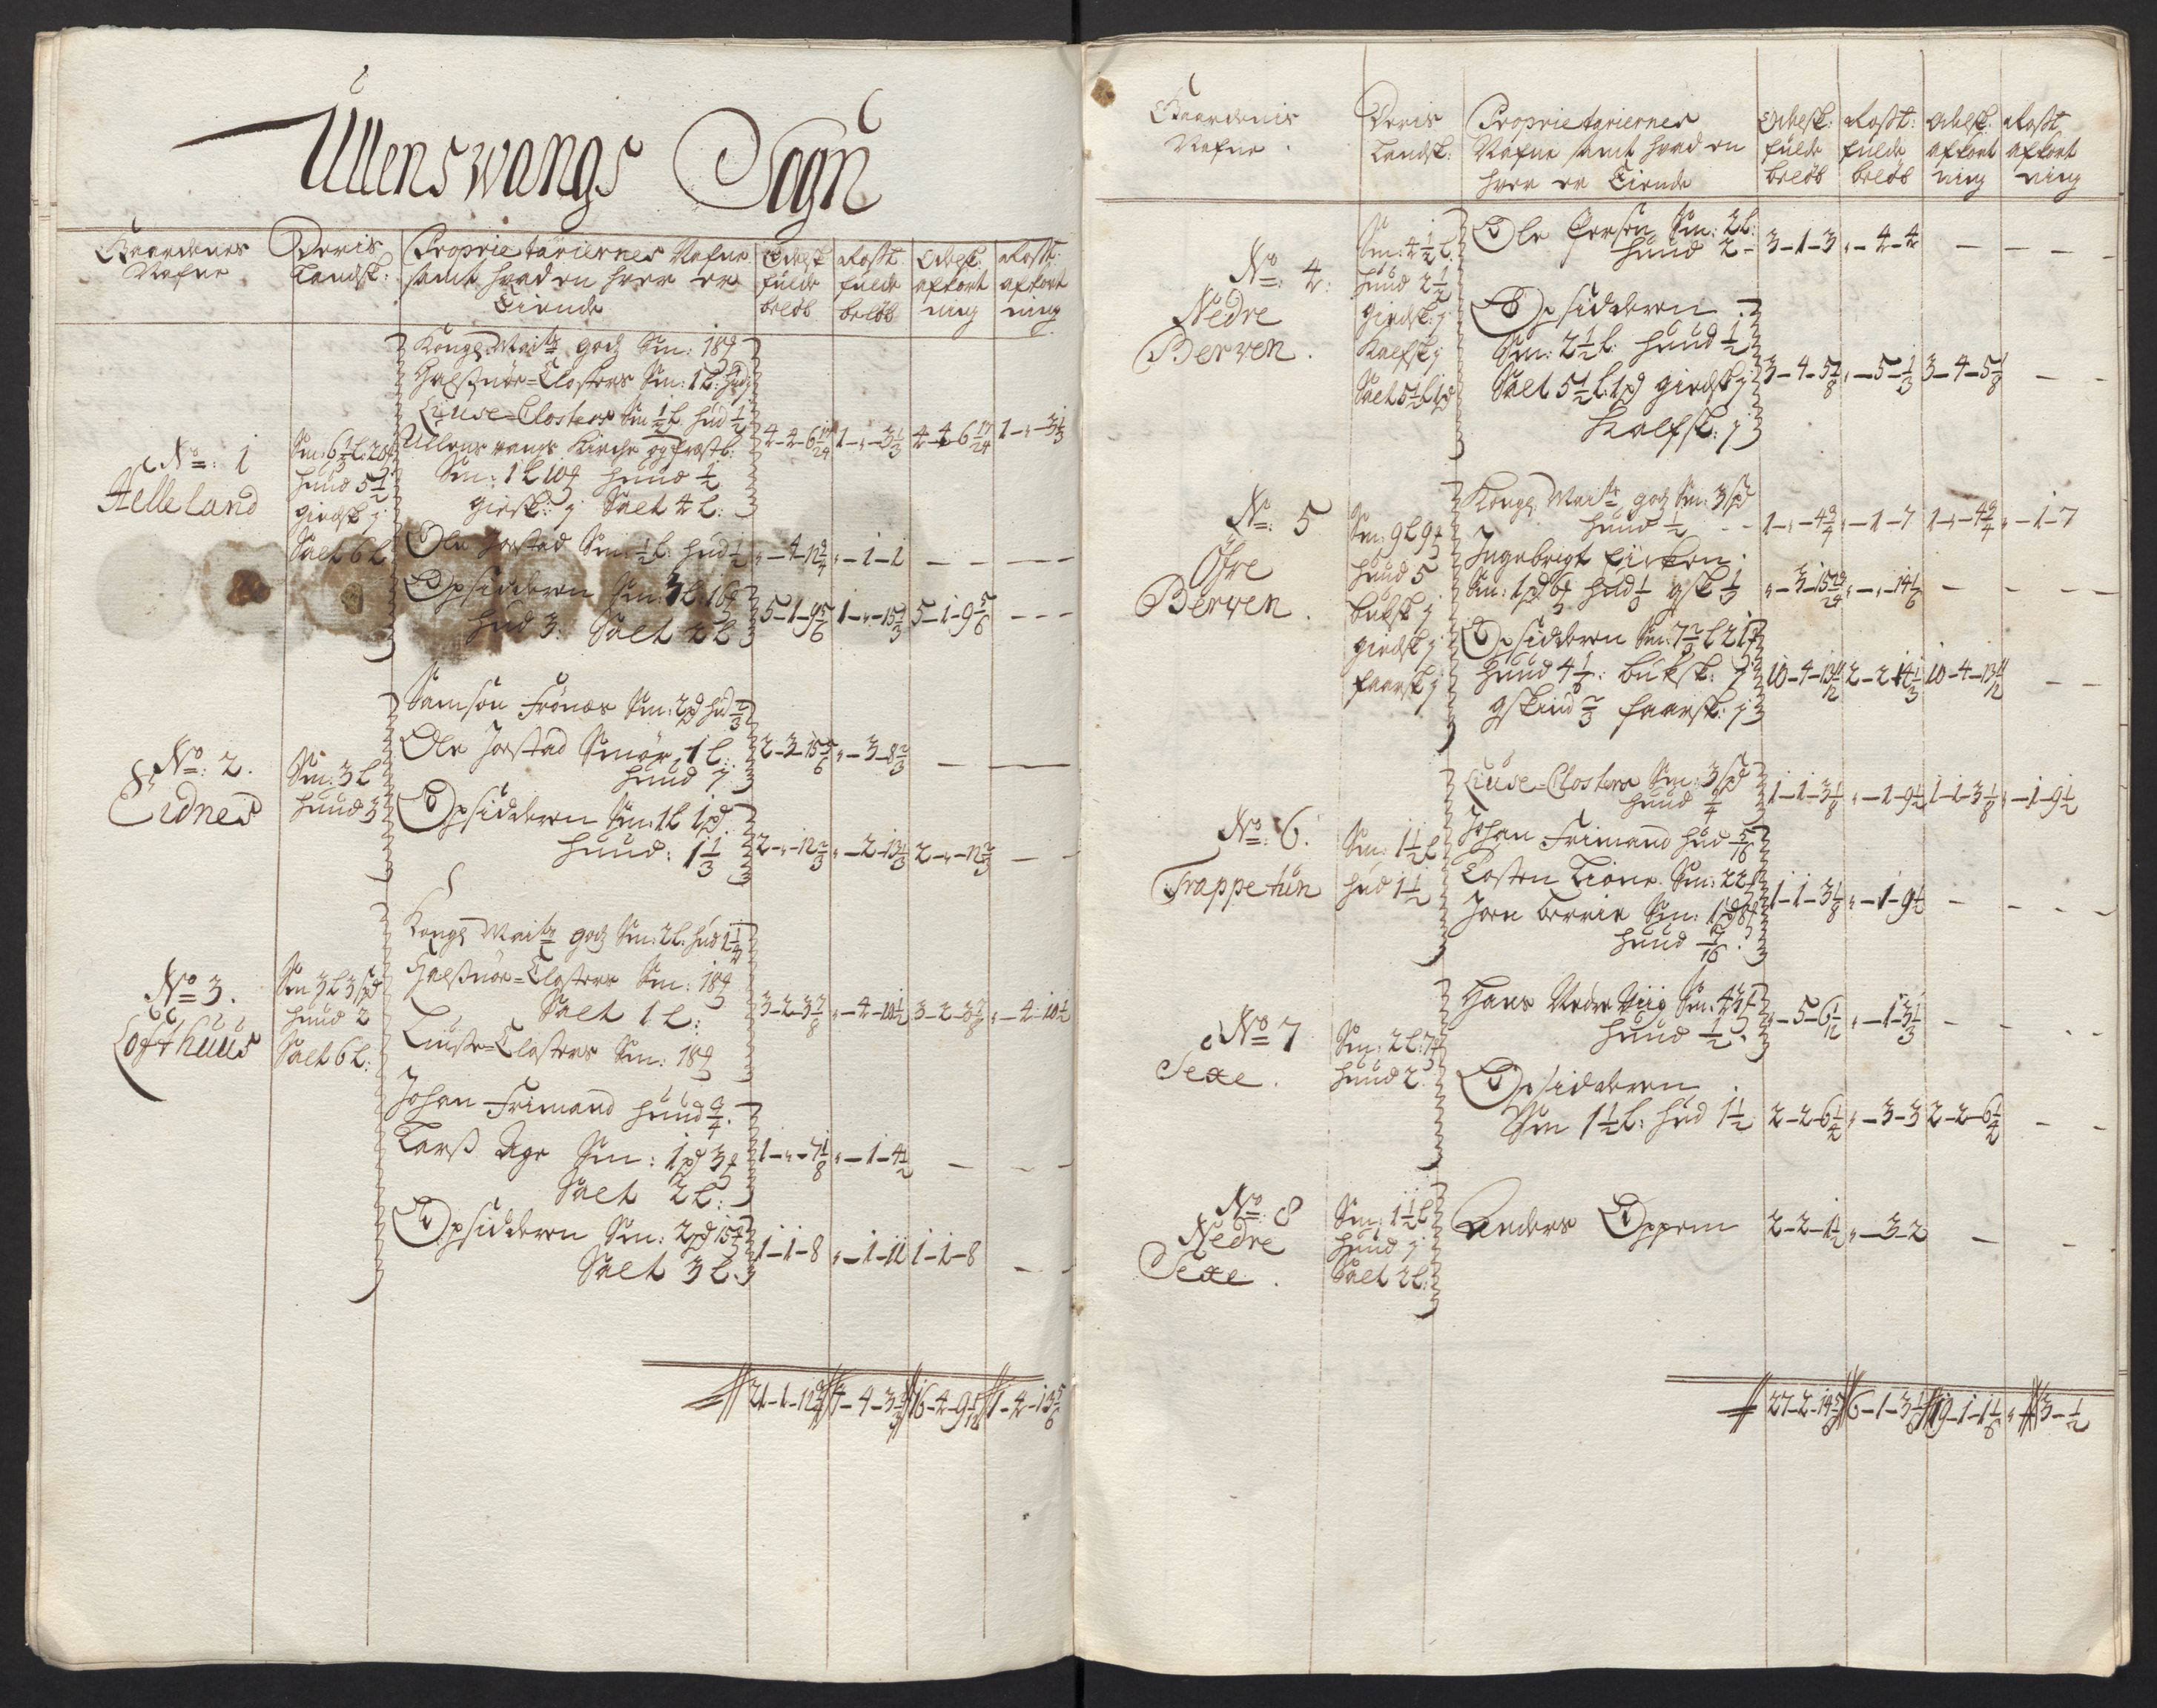 Ullenswangs Sogn
Gaardenes Nafne
Deris Landsk:
Proprietariernes Nafne samt hvad en hver er Eiende
Odelsk: fulde beløb
Rostt: fulde beløb
Odelsk: afkort ning
Rostt: afkort ning
No: 1
Aelleland
Sm: 6 1/3 L: 20
huud 5 1/2
giedsk j
Salt 6 L
Kongl: Maits godz Sm: 18
Halsnøe-Closters Sm: 1 L:
Liuse-Closters Sm 1/2 L hud 1/2
Ullensvangs Kirche og Præstb:
Sm: 1 L 10 huud 1/2
giesk: j Salt 4 L:
4-4-6 17/24 1-"-3 1/3 4-4-6 17/24 1-"-3 1/3
Ole Jorstad Sm: 1/2 L: hud 1/2
"-4-12 3/4 "-1-1 — — —
Opsidderen Sm: 3 L 16
hud 3: Salt 2 L
5-1-9 5/6 1-"-15 2/3 5-1-9 5/6 ---
No: 2.
Eidnes
Sm: 3 L
huud 3
Samson Frønæs Sm: 2 pd hud 2/3
Ole Jorstad Smør 1 L:
huud j
2-3-15 5/6 "-3-8 2/3 — —
Opsidderen Sm: 1 L 1 pd
huud: 1 1/3
2-"-12 2/3 "-2-13 1/3 2-"-12 2/3 — -
No 3.
Lofthuus
Sm 3 L 3 pd
huud 2
Salt 6 L:
Kongl Maits godz Sm: 2 L: hud 1 1/4
Halsnøe-Closters Sm: 18
Salt 1 L:
Liuse-Closters Sm: 18
3-2-3 7/8 "-4-10 1/2 3-2-3 7/8 "-4-10 1/2
Johan Frimand huud 3/4.
Larss Age Sm: 1 pd 3
Salt 2 L:
1-"-7 1/8 "-1-4 1/2 — - -
Opsidderen Sm: 2 pd 15
Salt 3 L:
1-1-8 "-1-11 1-1-8 — -
21-1-12 4-4-3 16-4-9 11/12 1-4-13 5/6
Gaardenis Nafne.
Deris Landsk:
Proprietariernes Nafne samt hvad en hver er Eiende
Odelsk: fulde beløb
Rostt: fulde beløb
Odelsk: afkort ning
Rostt afkort ning
No: 4:
Nedre
Berven.
Sm: 4 1/2 L
huud 2 1/2
giedsk: j
Kalfsk j
Salt 5 1/2 L 1 pd
Ole Sm: 2 L:
huud 2 -
3-1-3 "-4-4 — — —
Opsidderen
Sm: 2 1/2 L: huud 1/2
Salt 5 1/2 L: 1 pd giedsk j
Kalfsk: j
3-4-5 7/8 "-5-1/3 3-4-5 7/8 — -
No: 5
Øfre
Berven.
Sm: 9 L 9
huud 5
buksk j
giedsk j
faarsk j
Kongl: Maits godz Sm: 3 pd
huud 1/2 --
1-"-4 3/4 "-1-7 1-"-4 3/4 "-1-7
Ingebrigt
Sm: 1 pd 6 hud 1/6 gsk 1/3
"-3-15 "-"-14 1/6 — - -
Opsidderen Sm: 7 2/3 L 21
huud 4 1/3: buksk: j
gskind 2/3 faarsk: j
10-4-13 11/12 2-2-14 1/3 10-4-13 11/12 — -
No: 6.
Trappetun
Sm: 1 1/2 L
hud 1 1/2
Liuse-Closters Sm: 3 pd
huud 3/4
1-1-3 1/8 "-1-9 1/2 1-1-3 1/8 "-1-9 1/2
Johan Frimand hud 5/16
Losten Tione Sm: 22
Joen Berrie Sm: 1 pd 8
huud 7/16
1-1-3 1/8 "-1-9 1/2 - - -
No 7
Sexe.
Sm: 2 L: 7
huud 2
Hans Nedre Viig Sm: 4
huud 1/2.
"-5-6 1/12 "-1-3 1/3 - - -
Opsidderen
Sm 1 1/2 L: hud 1 1/2
2-2-6 1/4 "-3-3 2-2-6 1/4 — -
No: 8
Nedre
Sexe.
Sm: 1 1/2 L
huud j
Salt 2 L:
Anders Oppem
2-2-1 1/2 "-3-2 — — -
27-2-14 6-1-3 19-1-1 1/6 "-3-1/2